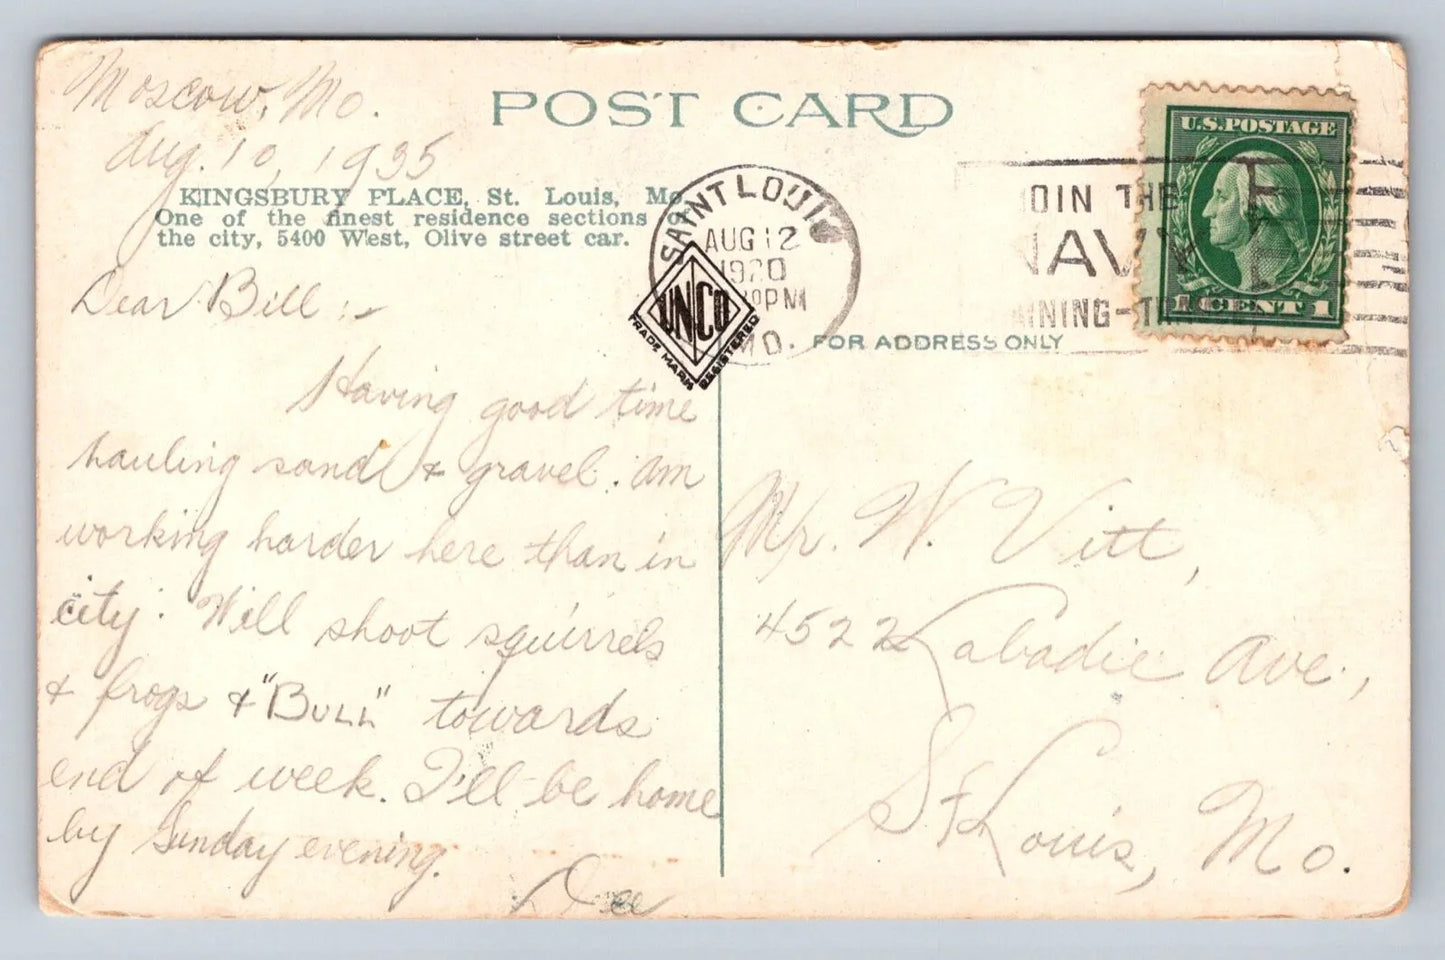 POST CARD
Moscow, Mo.
Aug. 10, 1935
KINGSBURY PLACE, St. Louis, Mo.
One of the finest residence sections of
the city, 5400 West, Olive street car.
Dear Bill :-
Having good time
hauling sand & gravel. Am
working harder here than in
city. Will shoot squirrels
& frogs & "BULL" towards
end of week. I'll be home
by Sunday evening.
Dee
SAINT LOUIS
AUG 12
1920
PM
MO.
UNCO
TRADE MARK REGISTERED
JOIN THE
NAVY
U.S. POSTAGE
1 CENT 1
FOR ADDRESS ONLY
Mr. W. Vitt,
4522 Labadie Ave.,
St Louis, Mo.